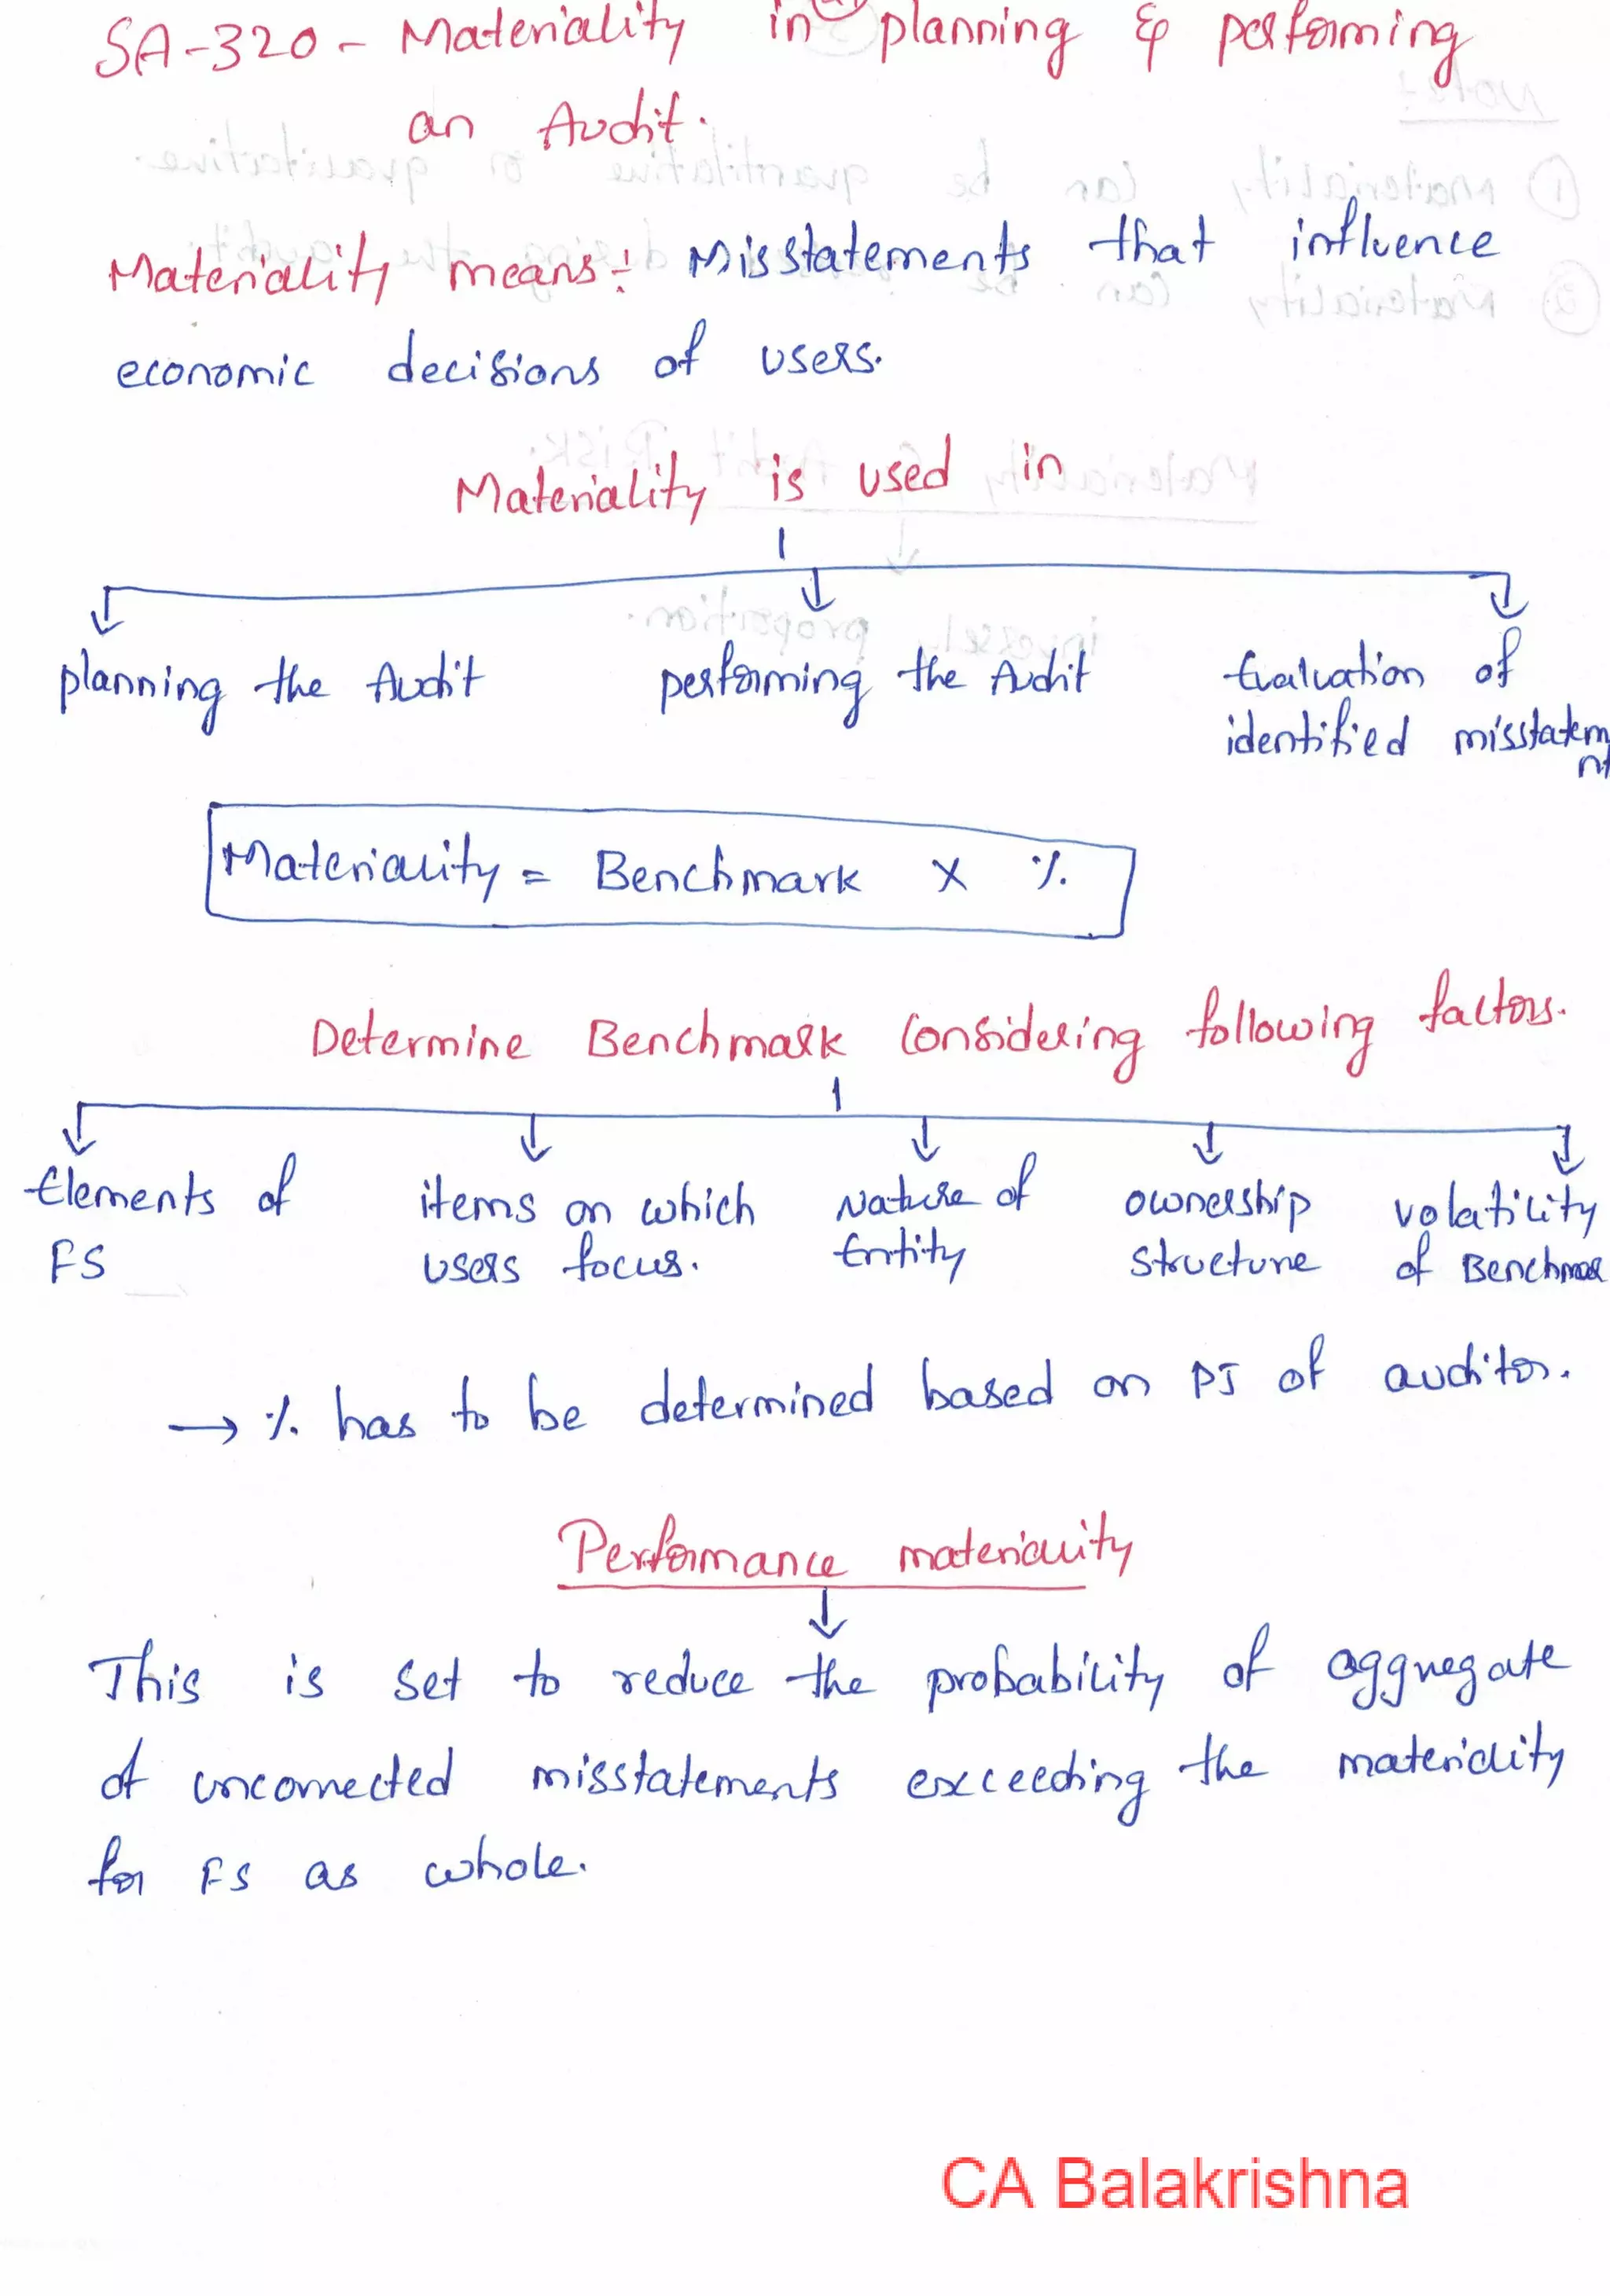 SA-320 - Materiality in planning & performing
an Audit.
Materiality means:- Misstatements that influence
economic decisions of users.
Materiality is used in
planning the Audit performing the Audit Evaluation of
identified misstatem
nt
Materiality = Benchmark x %
Determine Benchmark considering following factors.
Elements of items on which Nature of ownership volatility
FS users focus. Entity structure of Benchmar
→ % has to be determined based on PJ of auditor.
Performance materiality
This is set to reduce the probability of aggregate
of uncorrected misstatements exceeding the materiality
for FS as whole.
CA Balakrishna